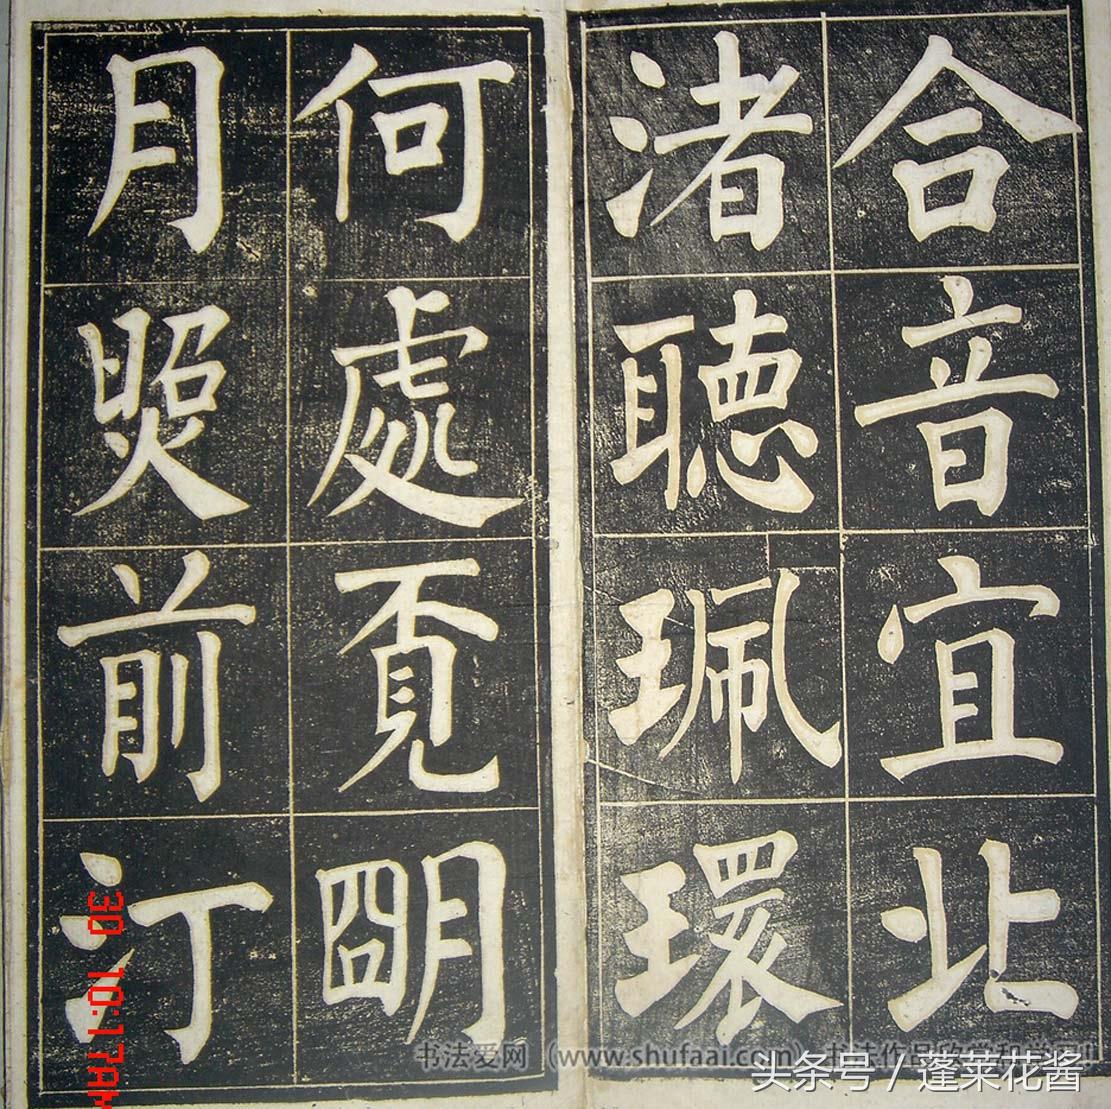 合音宜北
渚聽珮環
何處覓朙
月照前汀
30 10:17AM
书法爱网（www.shufaai.com）书法作品欣赏和学习!
头条号 / 蓬莱花酱